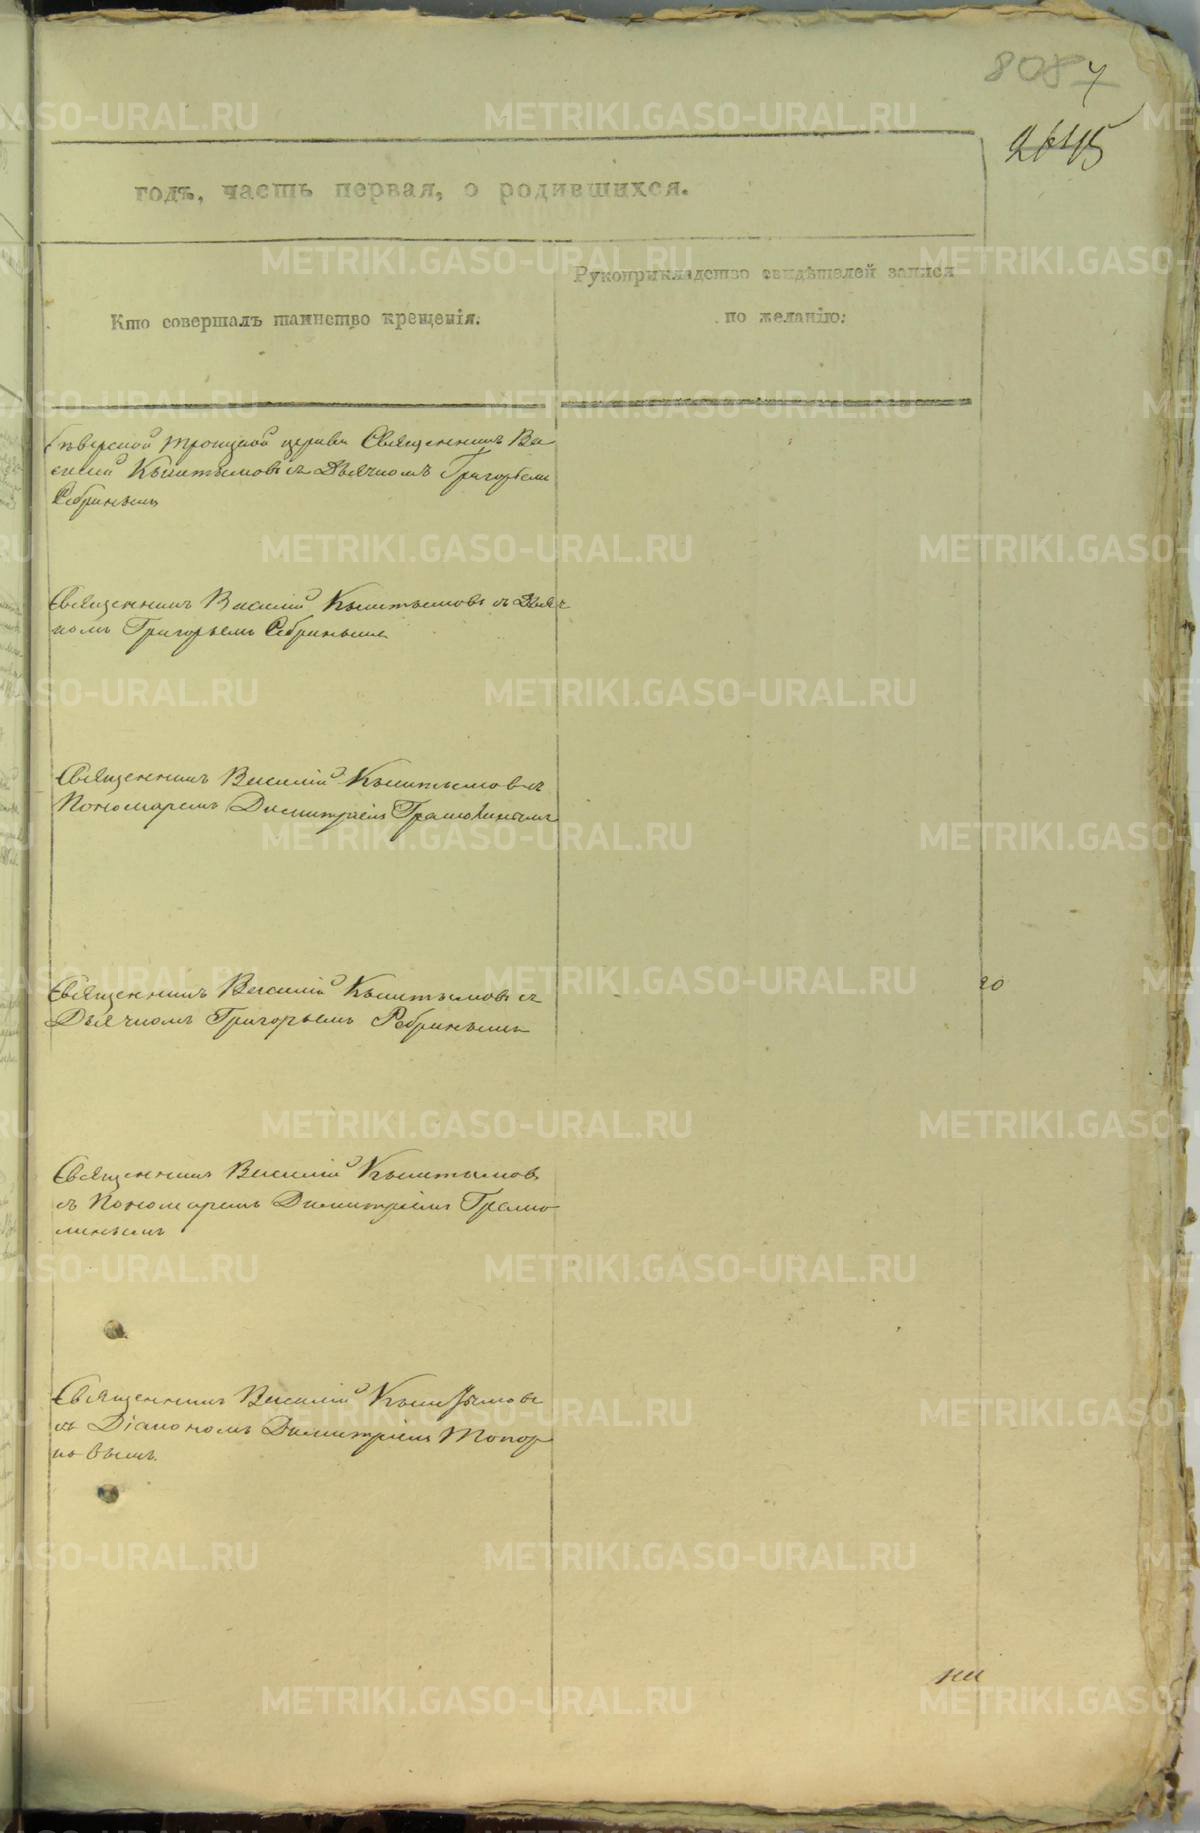 808
годъ, часть первая, о родившихся.
Кто совершалъ таинство крещенія.
Рукоприкладство свидѣтелей записи
по желанію:
Сѣверской Троицкой церкви Священникъ Ва
силій Кыштымовъ съ Дьячкомъ Григорьемъ
Ребринымъ
Священникъ Василій Кыштымовъ съ Дьяч
комъ Григорьемъ Ребринымъ
Священникъ Василій Кыштымовъ съ
Пономаремъ Димитріемъ
Священникъ Василій Кыштымовъ съ
Дьячкомъ Григорьемъ Ребринымъ
20
Священникъ Василій Кыштымовъ
съ Пономаремъ Димитріемъ
Священникъ Василій Кыштымовъ
съ Діакономъ Димитріемъ Топор
ковымъ.
METRIKI.GASO-URAL.RU